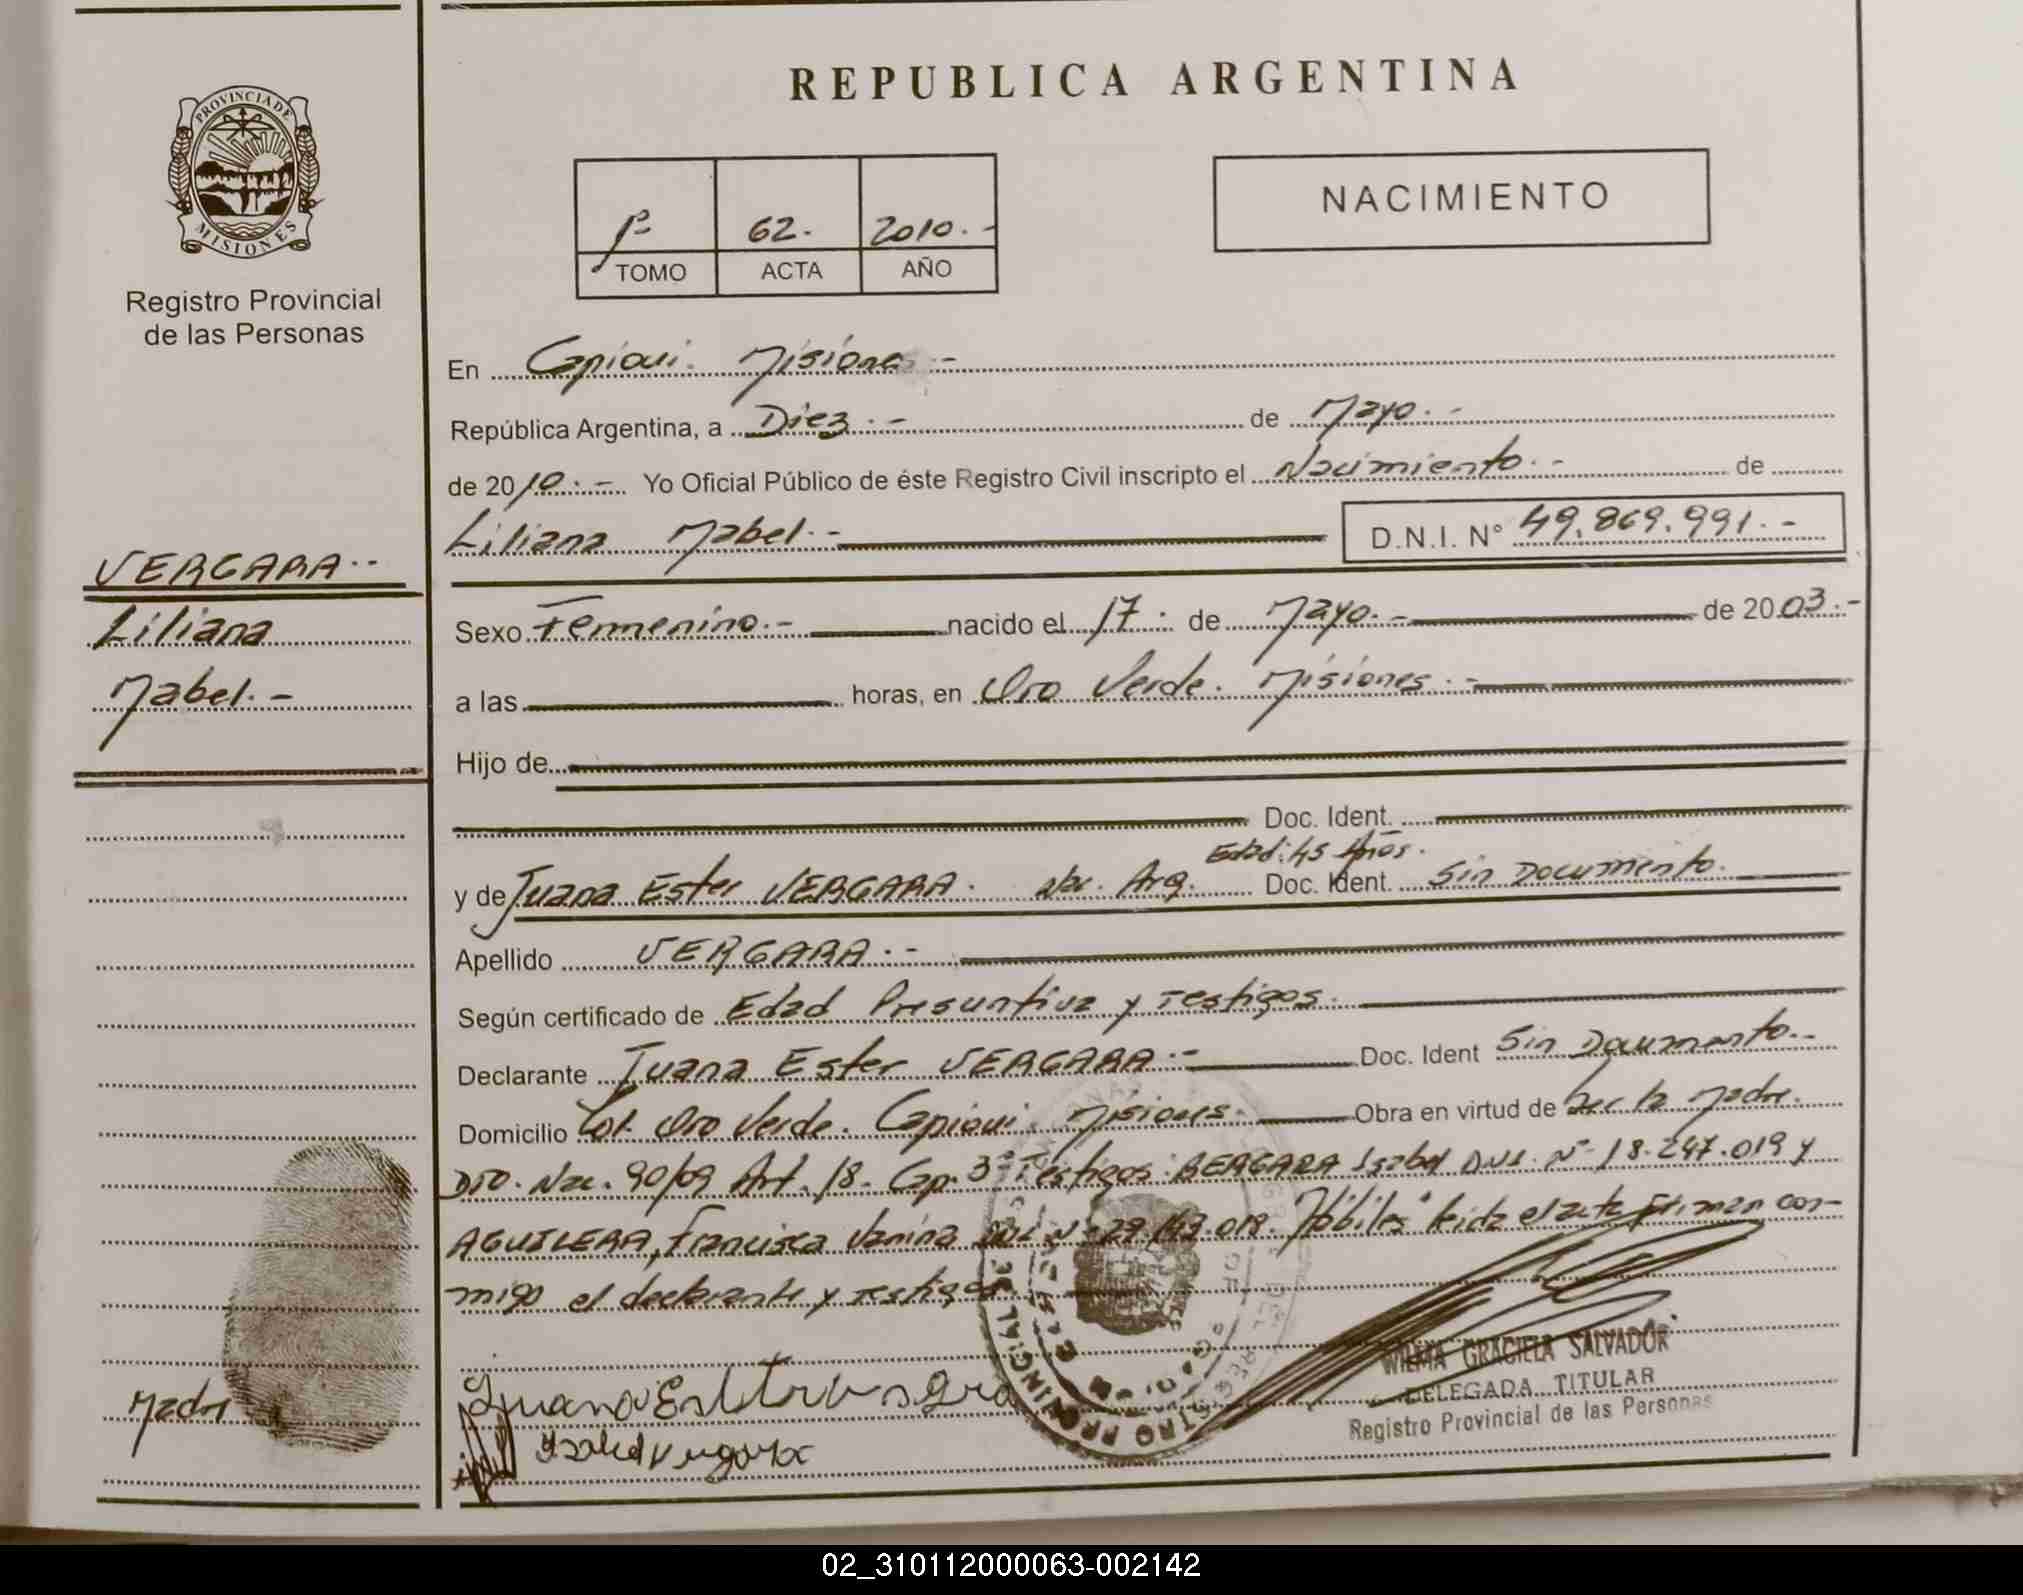 REPUBLICA ARGENTINA
PROVINCIA DE
MISIONES
Registro Provincial
de las Personas
1º 62. 2010.-
TOMO ACTA AÑO
NACIMIENTO
En Capiovi. Misiones.-
República Argentina, a Diez.- de Mayo.-
de 2010.- Yo Oficial Público de éste Registro Civil inscripto el Nacimiento.- de
Liliana Mabel.- D.N.I. N° 49.869.991.-
VERGARA.-
Liliana
Mabel.-
Sexo Femenino.- nacido el 17. de Mayo.- de 2003.-
a las horas, en Oro Verde. Misiones.-
Hijo de
Doc. Ident.
Edad: 45 Años.
y de Juana Ester VERGARA. Nac. Arg. Doc. Ident. Sin Documento.
Apellido VERGARA.-
Según certificado de Edad Presuntiva y Testigos.
Declarante Juana Ester VERGARA.- Doc. Ident Sin Documento.-
Domicilio Col. Oro Verde. Capiovi. Misiones. Obra en virtud de Ser la Madre.
DTO. Nac. 90/09 Art. 18. Cap. 3º Testigos: BERGARA Isabel DNI. Nº 18.247.019 y
AGUILERA, Francisca Vanina DNI Nº 29.143.018. Hábiles leida el acta firman con-
migo el declarante y testigos
Juana Ester
Madre
WILMA GRACIELA SALVADOR
DELEGADA TITULAR
Registro Provincial de las Personas
02_310112000063-002142